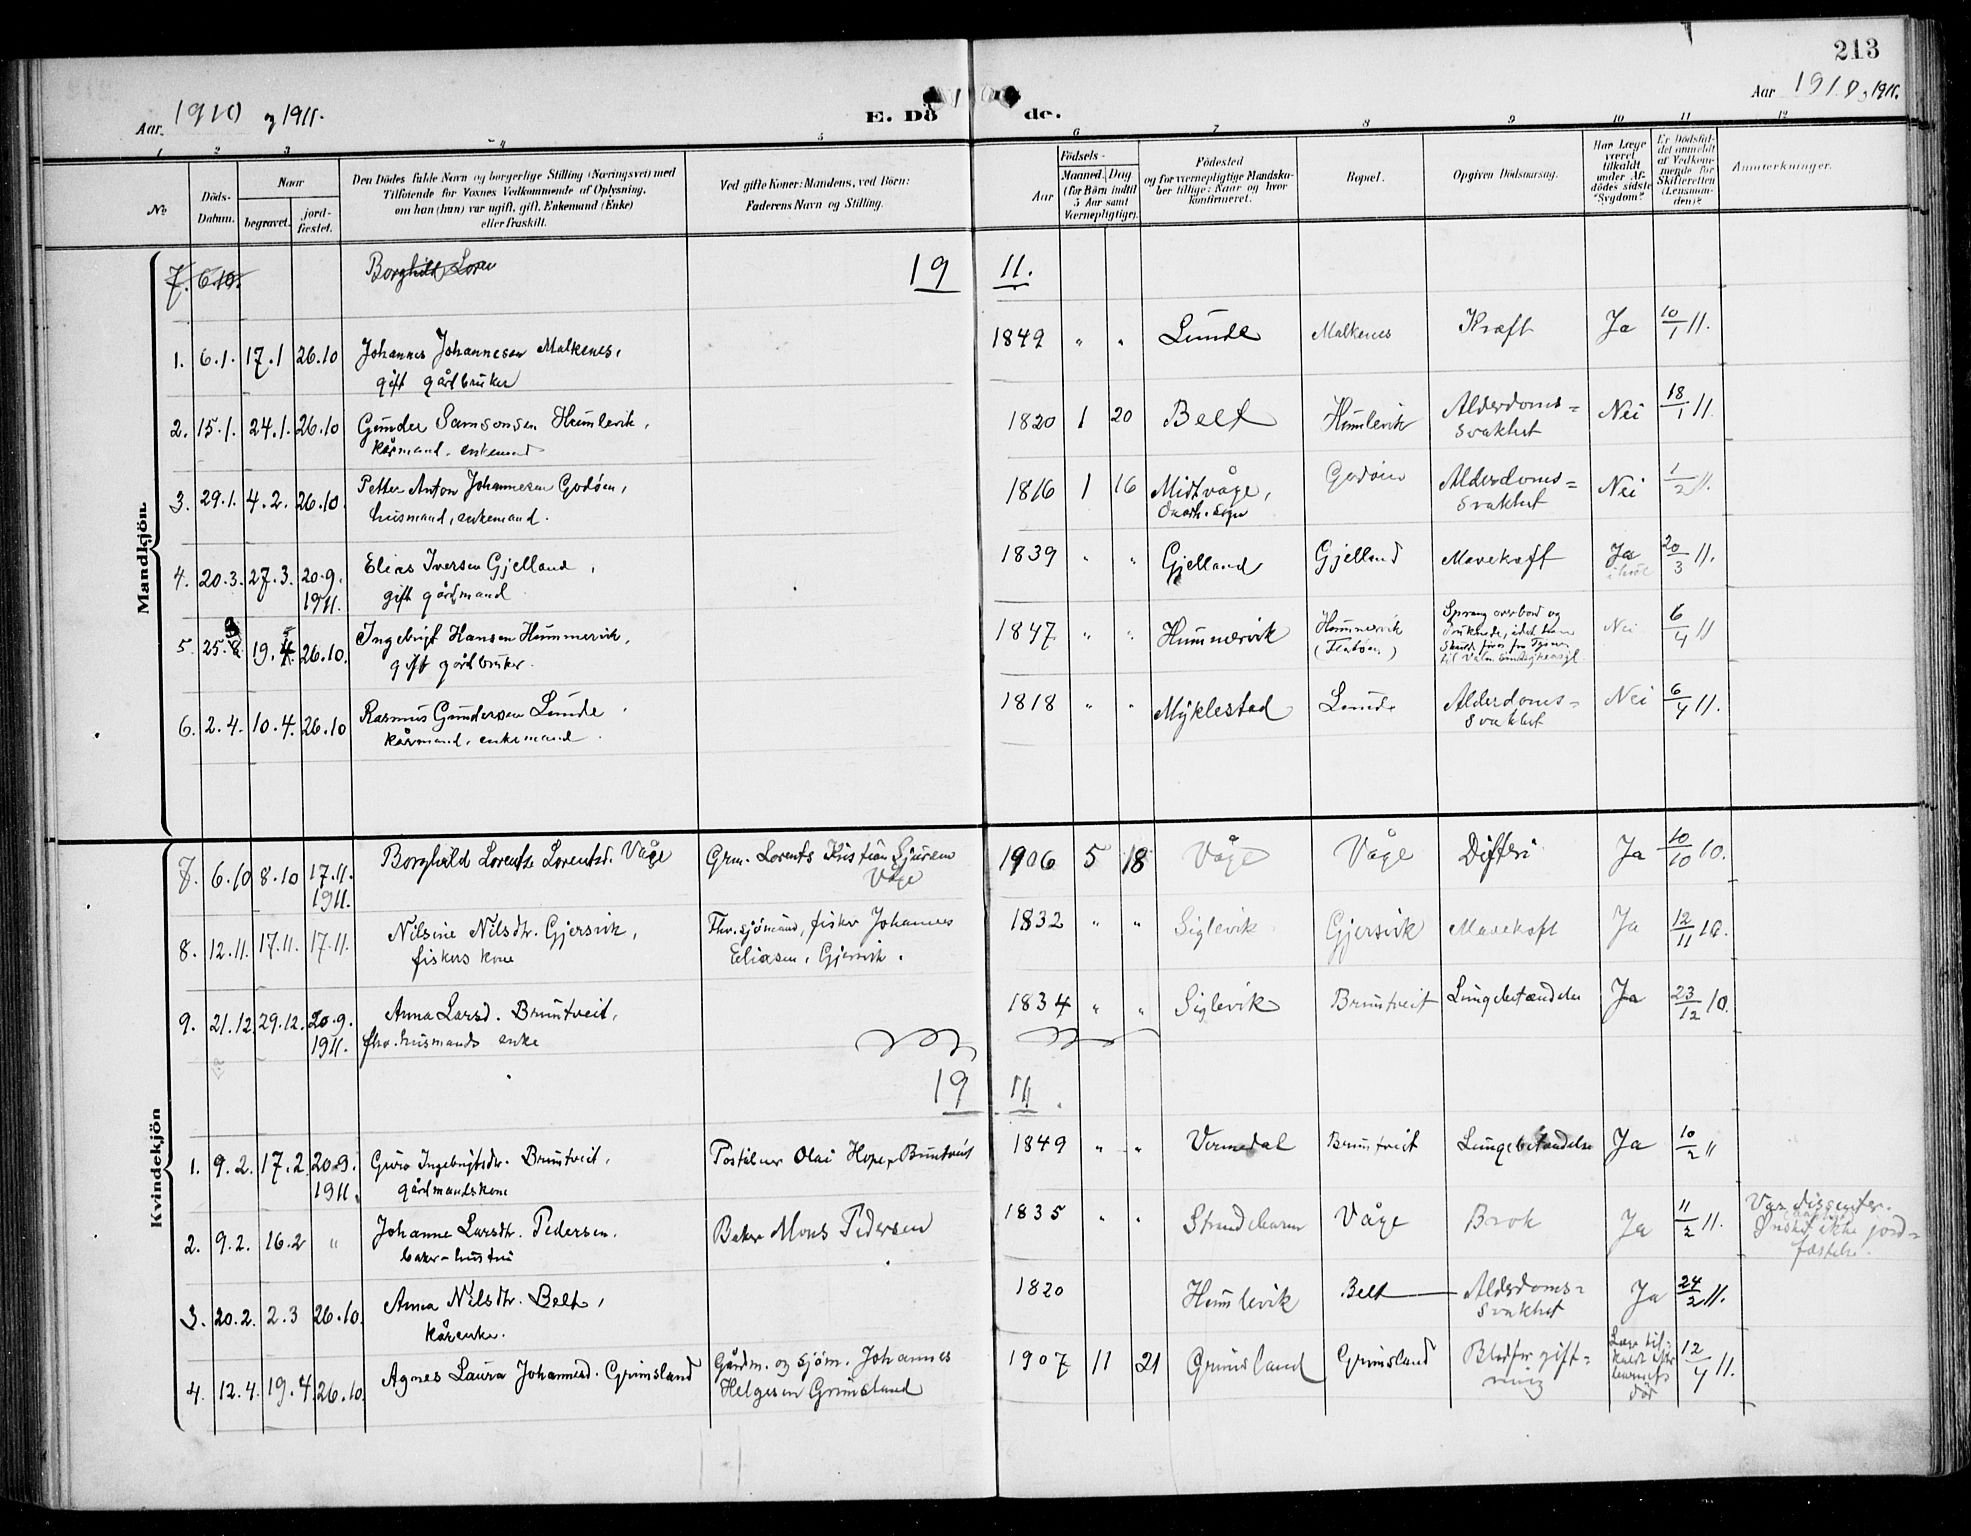 213
Aar 1910 og 1911.
E. Döde.
Aar 1910 og 1911.
1 2 3 4 5 6 7 8 9 10 11 12
No
Döds-Datum.
Naar
begravet.
jord-fæstet.
Den Dödes fulde Navn og borgerlige Stilling (Næringsvei) med
Tilföiende for Voxnes Vedkommende af Oplysning,
om han (hun) var ugift, gift, Enkemand (Enke)
eller fraskilt.
Ved gifte Koner: Mandens, ved Börn:
Faderens Navn og Stilling.
Födsels-
Aar
Maaned. Dag
(for Börn indtil
5 Aar samt
Værnepligtige).
Födested
og for værnepligtige Mandska-
ber tillige: Naar og hvor
konfirmeret.
Bopæl.
Opgiven Dödsaarsag.
Har Læge
været
tilkaldt
under Af-
dödes sidste
Sygdom?
Er Dödsfal-
det anmeldt
af Vedkom-
mende for
Skifteretten
(Lensman-
den)?
Anmerkninger.
Mandkjön.
7. 6.10. Borghild Loren
1911.
1. 6.1. 17.1 26.10 Johannes Johannesen Malkenes, 1849 " " Lunde Malkenes Kræft Ja 10/1 11.
gift gårdbruker
2. 15.1. 24.1. 26.10 Gunder Samsonsen Humlevik, 1820 1 20 Belt Humlevik Alderdoms= Nei 18/1 11.
kårmand, enkemand svakhet
3. 29.1. 4.2. 26.10. Petter Anton Johannesen Godøen, 1816 1 16 Midtvåge, Godøen Alderdoms= Nei 1/2 11.
husmand, enkemand. svakhet
4. 20.3. 27.3. 20.9. Elias Iversen Gjelland, 1839 " " Gjelland Gjelland Mavekræft Ja 20/3 11.
1911. gift gårdmand
5. 25. 19. 26.10. Ingebrigt Hansen Hummervik, 1847 " " Hummervik Hummervik Sprang overbord og Nei 6/4 11
gift gårdbruker. druknede, idet han
skulde føres fra
6. 2.4. 10.4. 26.10 Rasmus Gundersen Lunde 1818 " " Myklestad Lunde Alderdoms= Nei 6/4 11.
kårmand, enkemand svakhet
Kvindekjön
7. 6.10 8.10 17.11. Borghild Lorentse Lorentsd. Våge Grm. Lorents Kristian Sjursen 1906 5 18 Våge Våge Difteri Ja 10/10 10.
1911. Våge
8. 12.11. 17.11. 17.11. Nilsine Nilsdtr. Gjersvik, Fhv. sjømand, fisker Johannes 1832 " " Siglevik Gjersvik Mavekræft Ja 12/11 10.
fiskers kone Eliasen, Gjersvik.
9. 21.12. 29.12. 20.9. Anna Larsd. Bruntveit, 1834 " " Siglevik Bruntveit Lungebetændelse Ja 23/12 10.
1911. fhv. husmands enke
1911.
1. 9.2. 17.2 20.9. Guro Ingebrigtsdtr. Bruntveit, Postaåbner Olai Hope, Bruntveit 1849 " " Vermedal Bruntveit Lungebetændelse Ja 10/2 "
1911. gårdmandskone
2. 9.2. 16.2 " Johanne Larsdtr. Pedersen. Baker Mons Pedersen 1835 " " Strandebarm Våge Brok Ja 11/2 11. Var dissenter.
baker-hustru Ønsket ikke jord=
fæstelse.
3. 20.2. 2.3 26.10. Anna Nilsdtr. Belt, 1820 Humlevik Belt Alderdoms= Ja 24/2 11.
kårenke. svakhet
4. 12.4. 19.4 26.10. Agnes Laura Johannesd. Grimsland Gårdm. og sjøm. Johannes 1907 11 21 Grimsland Grimsland Blodforgift= Læge til= 12/4 11.
Helgesen Grimsland ning kaldt efter
barnets
død